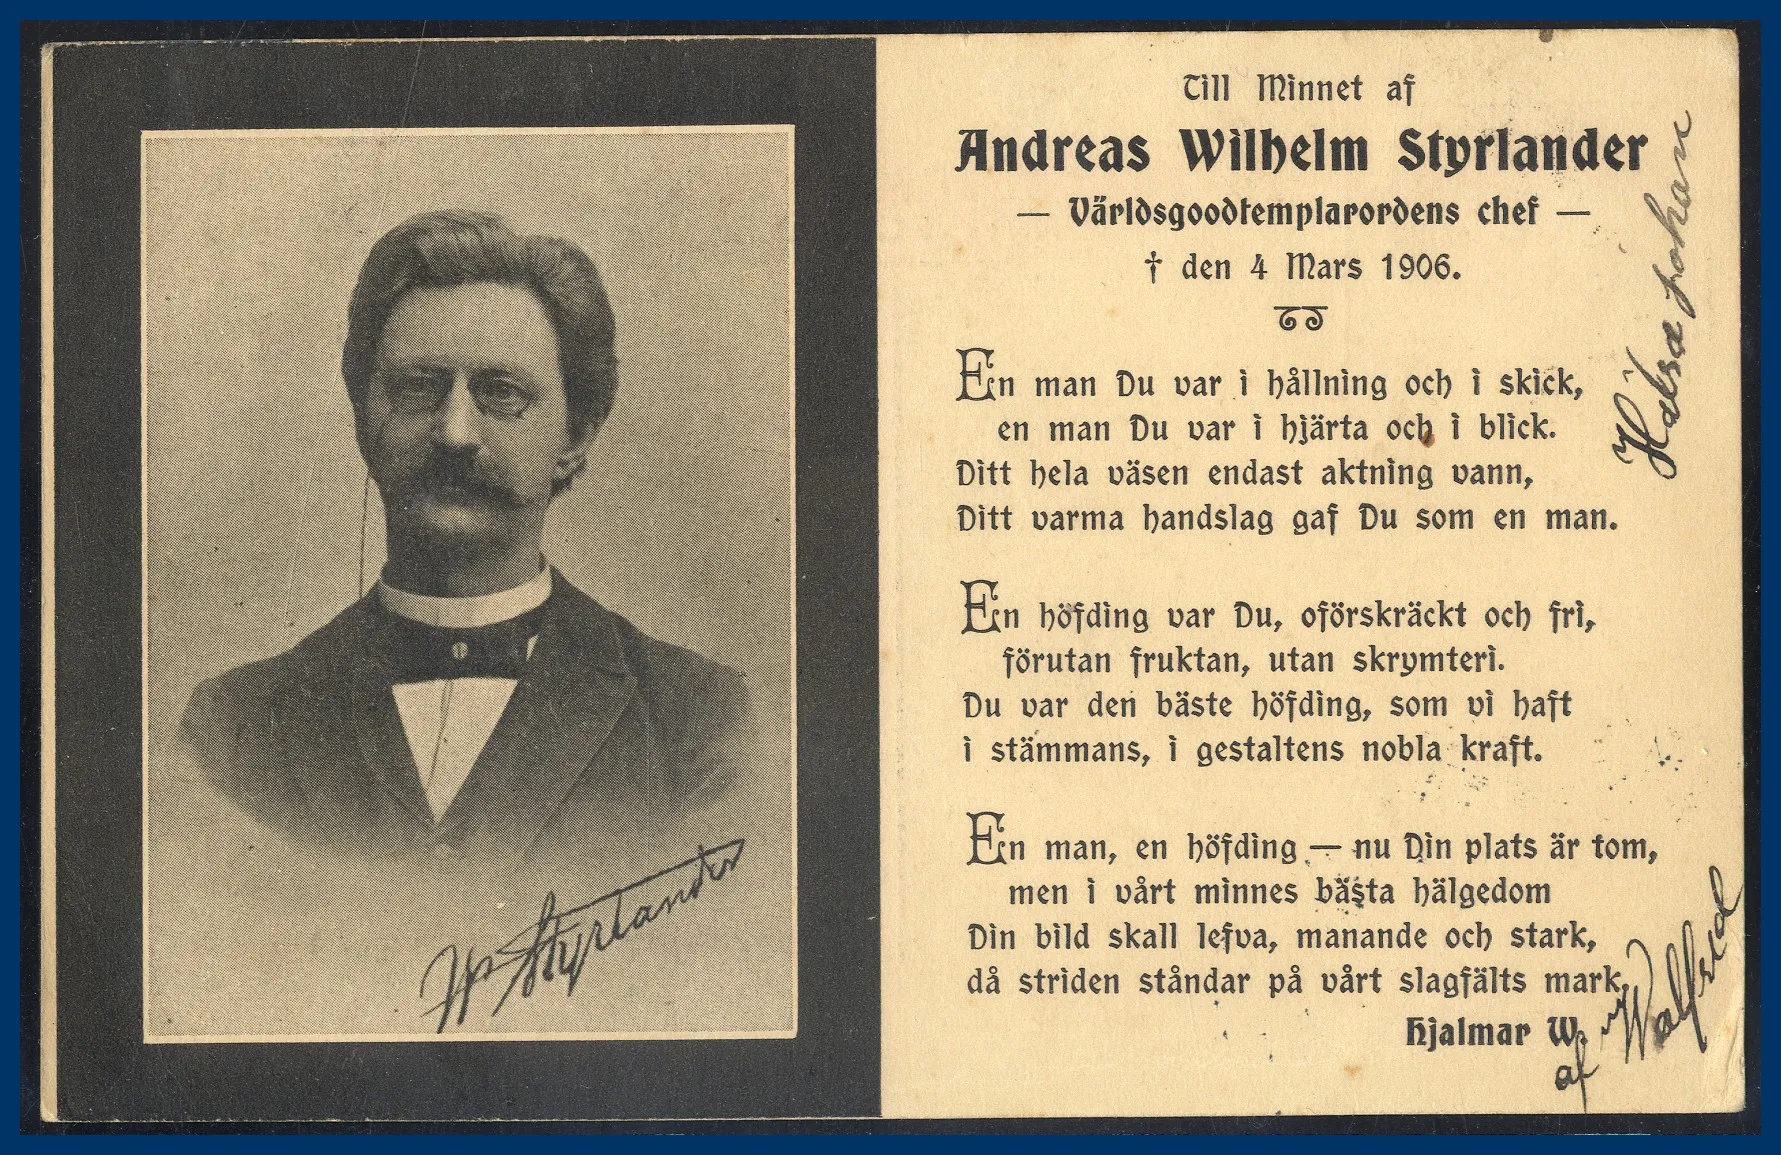 Till Minnet af
Andreas Wilhelm Styrlander
— Världsgoodtemplarordens chef —
† den 4 Mars 1906.
En man Du var i hållning och i skick,
en man Du var i hjärta och i blick.
Ditt hela väsen endast aktning vann,
Ditt varma handslag gaf Du som en man.
En höfding var Du, oförskräckt och fri,
förutan fruktan, utan skrymteri.
Du var den bäste höfding, som vi haft
i stämmans, i gestaltens nobla kraft.
En man, en höfding — nu Din plats är tom,
men i vårt minnes bästa hälgedom
Din bild skall lefva, manande och stark,
då striden ståndar på vårt slagfälts mark.
Hjalmar W.
Styrlander
Hälsa Johan
af Walfrid